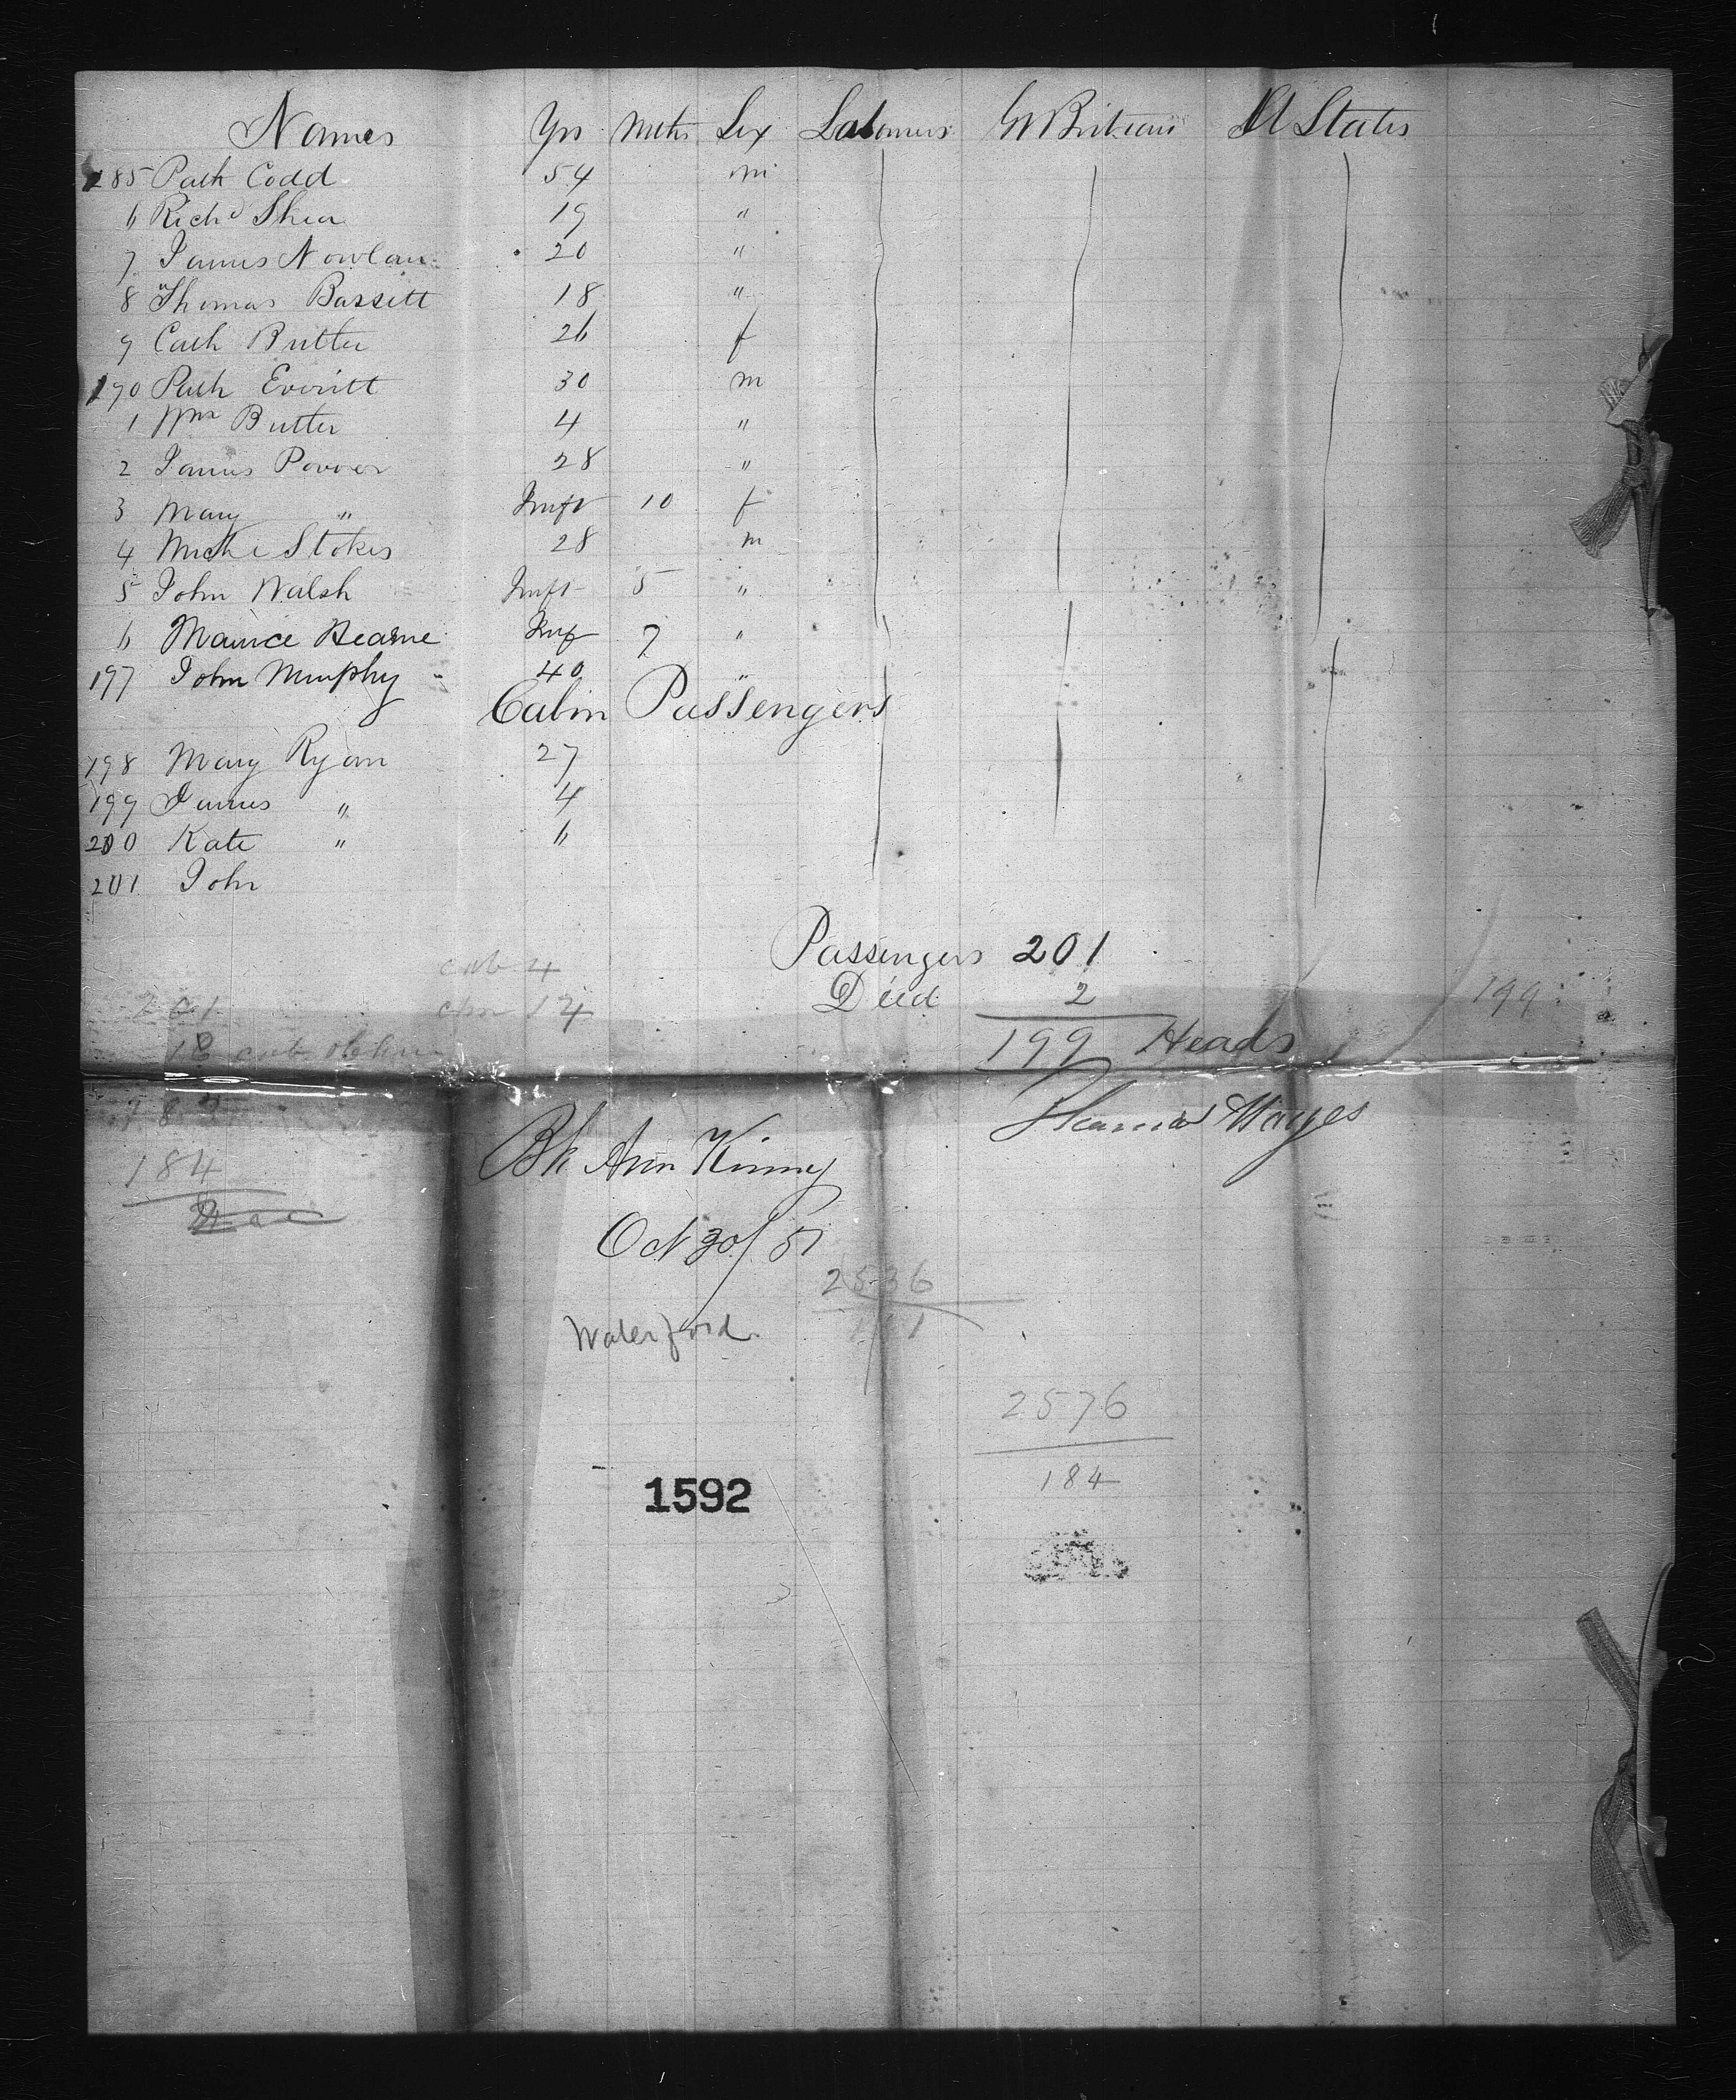 Names Yrs Mths Sex Labourers Gt Britain U States
185 Patk Codd 54 m
6 Richd Shea 19 "
7 James Nowlan 20 "
8 Thomas Bassett 18 "
9 Cath Butler 26 f
190 Patk Everitt 30 m
1 Wm Butler 4 "
2 James Power 28 "
3 Mary " Inft 10 f
4 Miche Stokes 28 m
5 John Walsh Inft 5 "
6 Maurice Hearne Inf 7 "
197 John Murphy 40 "
Cabin Passengers
198 Mary Ryan 27
199 James " 4
200 Kate " 6
201 John
Passengers 201
cab 4
Died 2 199
201 chn 14
199 Heads
18 cab
Hayes
183
Bk Ann Kenny
184
Oct 30/51
2536
Waterford
161
2576
184
1592